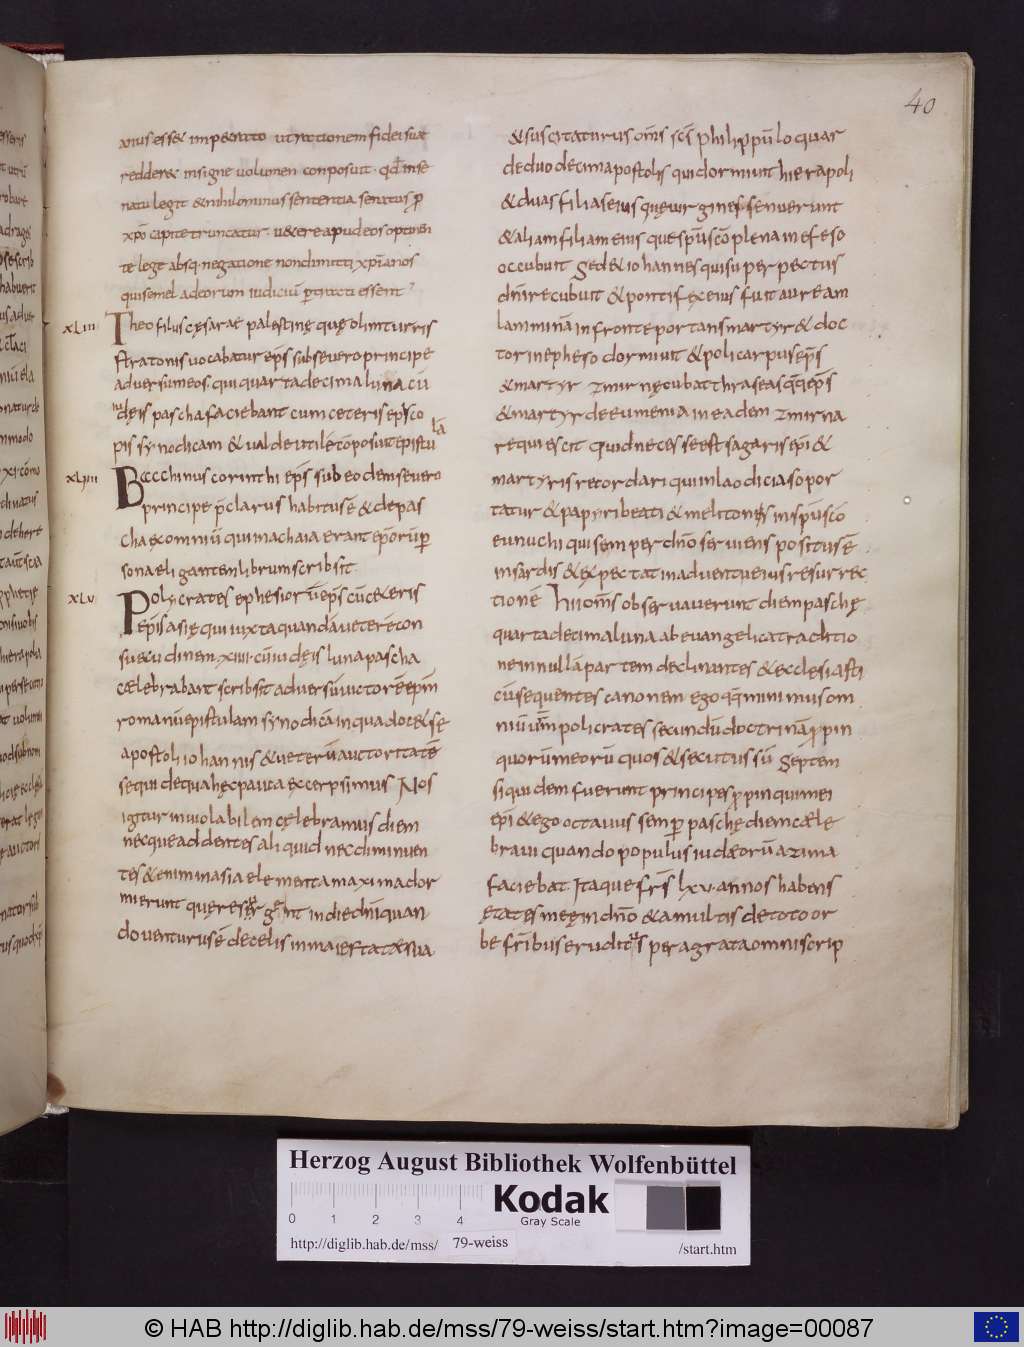 40
anus esset impetrato ut rationem fidei suae
redderet insigne volumen conposuit · qđ in se
natu legit & nihilominus sententia senatus ꝑ
xp̄o capite truncatur · uetere apud eos optinen
te lege absq · negatione non dimitti xp̄ianos
qui semel ad eorum iudiciū ꝑtracti essent
XLIII Theofilus cęsareae palestinę quę olim turris
stratonis vocabatur ep̄s sub severo principe
adversum eos qui quarta decima luna cū
iudęis pascha faciebant cum ceteris episco
pis synodicam & valde utilē cōposuit epistu
la
XLIIII Bacchinus corinthi ep̄s sub eodem severo
principe p̄clarus habitus ē & de pas
cha ex omniū qui in achaia erant ep̄orū ꝑ
sona eligantem librum scribsit
XLV Polycrates ephesiorū ep̄s cū ceteris
ep̄is asię qui iuxta quandā veterē con
suetudinem XIIII · cū iudęis luna pascha
cælebrabant scribsit adversū victorē ep̄m
romanū epistulam synodicā in qua docet sę
apostoli iohannis & veterū auctoritatē
sequi de qua hęc pauca excerpsimus Nos
igitur inviolabilem cęlebramus diem
neque addentes aliquid neq diminuen
tes & enim in asia elementa maxima dor
mierunt quę resurgent in die dn̄i quan
do venturus ē de celis in maiestatae sua
& suscitaturus om̄s sc̄s philippū loquor
de duodecim apostolis qui dormiunt hierapoli
& duas filias eius quę virgines senuerunt
& aliam filiam eius que sp̄u sc̄o plena in efeso
occubuit Sed & iohannes qui super pectus
dn̄i recubuit & pontifex eius fuit auream
lamminā in fronte portans martyr & doc
tor in epheso dormiuit & policarpus ep̄s
& martyr zmirnę cubat thraseas qq ep̄s
& martyr de eumenia in eadem zmirna
requiescit Quid necesse est sagaris ep̄i &
martyris recordari qui in laodicia sopor
tatur & papyri beati & melitonis in sp̄u sc̄o
eunuchi qui semper dn̄o serviens positus ē
in sardis & expectat in adventu eius resurrec
tionē Hii om̄s observaverunt diem paschę
quarta decima luna ab evangelica traditio
ne in nullā partem declinantes & ecclesiasti
cū sequentes canonem ego qq minimus om
niū v̄m policrates secundū doctrinā ꝓpin
quorū meorū quos & secutus sū Septem
siquidem fuerunt principes ꝓpinqui mei
ep̄i & ego octavus semꝑ paschę diem cæle
bravi quando populus iudæorū azima
faciebat · Itaque fr̄s lxv · annos habens
ętates meę in dn̄o & a multis de toto or
be fr̄ibus eruditus peragrata omni scrip
Herzog August Bibliothek Wolfenbüttel
0 1 2 3 4
Kodak
Gray Scale
http://diglib.hab.de/mss/ 79-weiss /start.htm
© HAB http://diglib.hab.de/mss/79-weiss/start.htm?image=00087